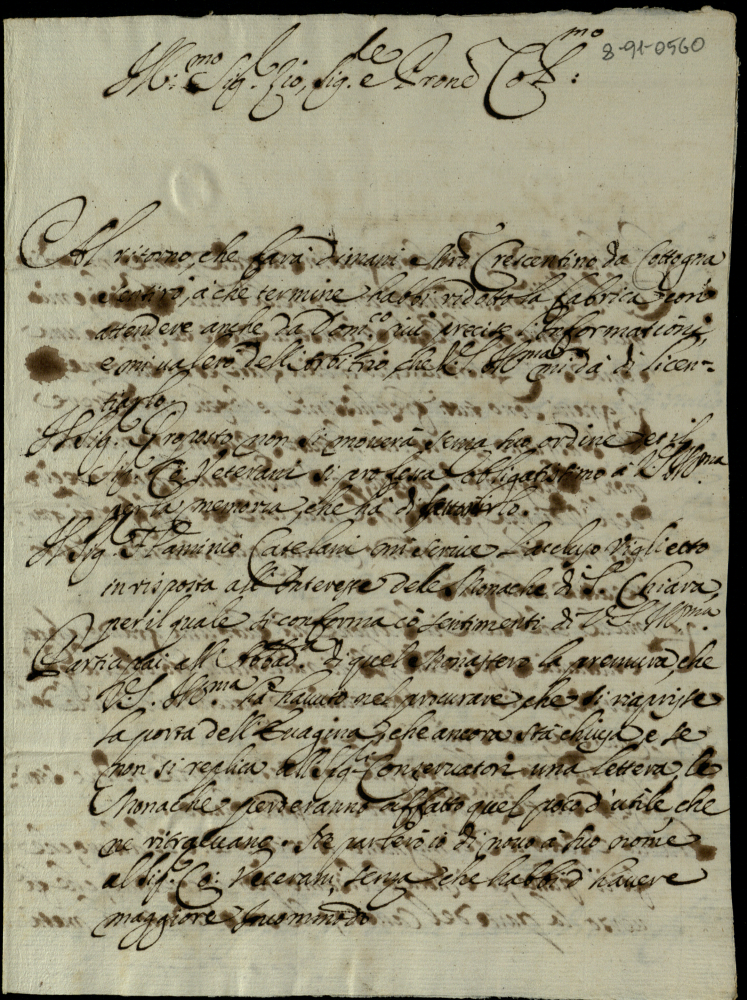 8-91-0560
Ill:mo Sig.r Zio, Sig.re e Prone Col:mo
Al ritorno, che farà dimani Mro Crescentino da Cottogna
sentirò, a che termine habbi ridotto la fabrica con
attendere anche da Dom.co più precise Informationi,
e mi valerò dell'Arbitrio, che V.S. Ill:ma mi dà di licen=
tiarlo.
Il Sig.r Proposto non si moverà senza suo ordine, et il
Sig.r Co: Veterani si professa obligatissimo a V.S. Ill:ma
per la memoria, che ha di favorirlo.
Il Sig.r Flaminio Catelani mi scrive l'accluso Viglietto
in risposta all'Interesse delle Monache di S. Chiara,
per il quale si conforma co sentimenti di V.S. Ill:ma
Participai all'Abbad.a di quel Monastero la premura, che
V.S. Ill:ma ha havuto nel procurare, che si riaprisse
la porta dell' che ancora stà chiusa, e se
non si replica alli Sig.ri Conservatori una lettera, le
Monache perderanno affatto quel poco d'utile, che
ne ritraevano. Ne parlerò io di novo a suo nome
al Sig.r Co: Veterani, senza che habbi d'havere
maggiore Incommodo